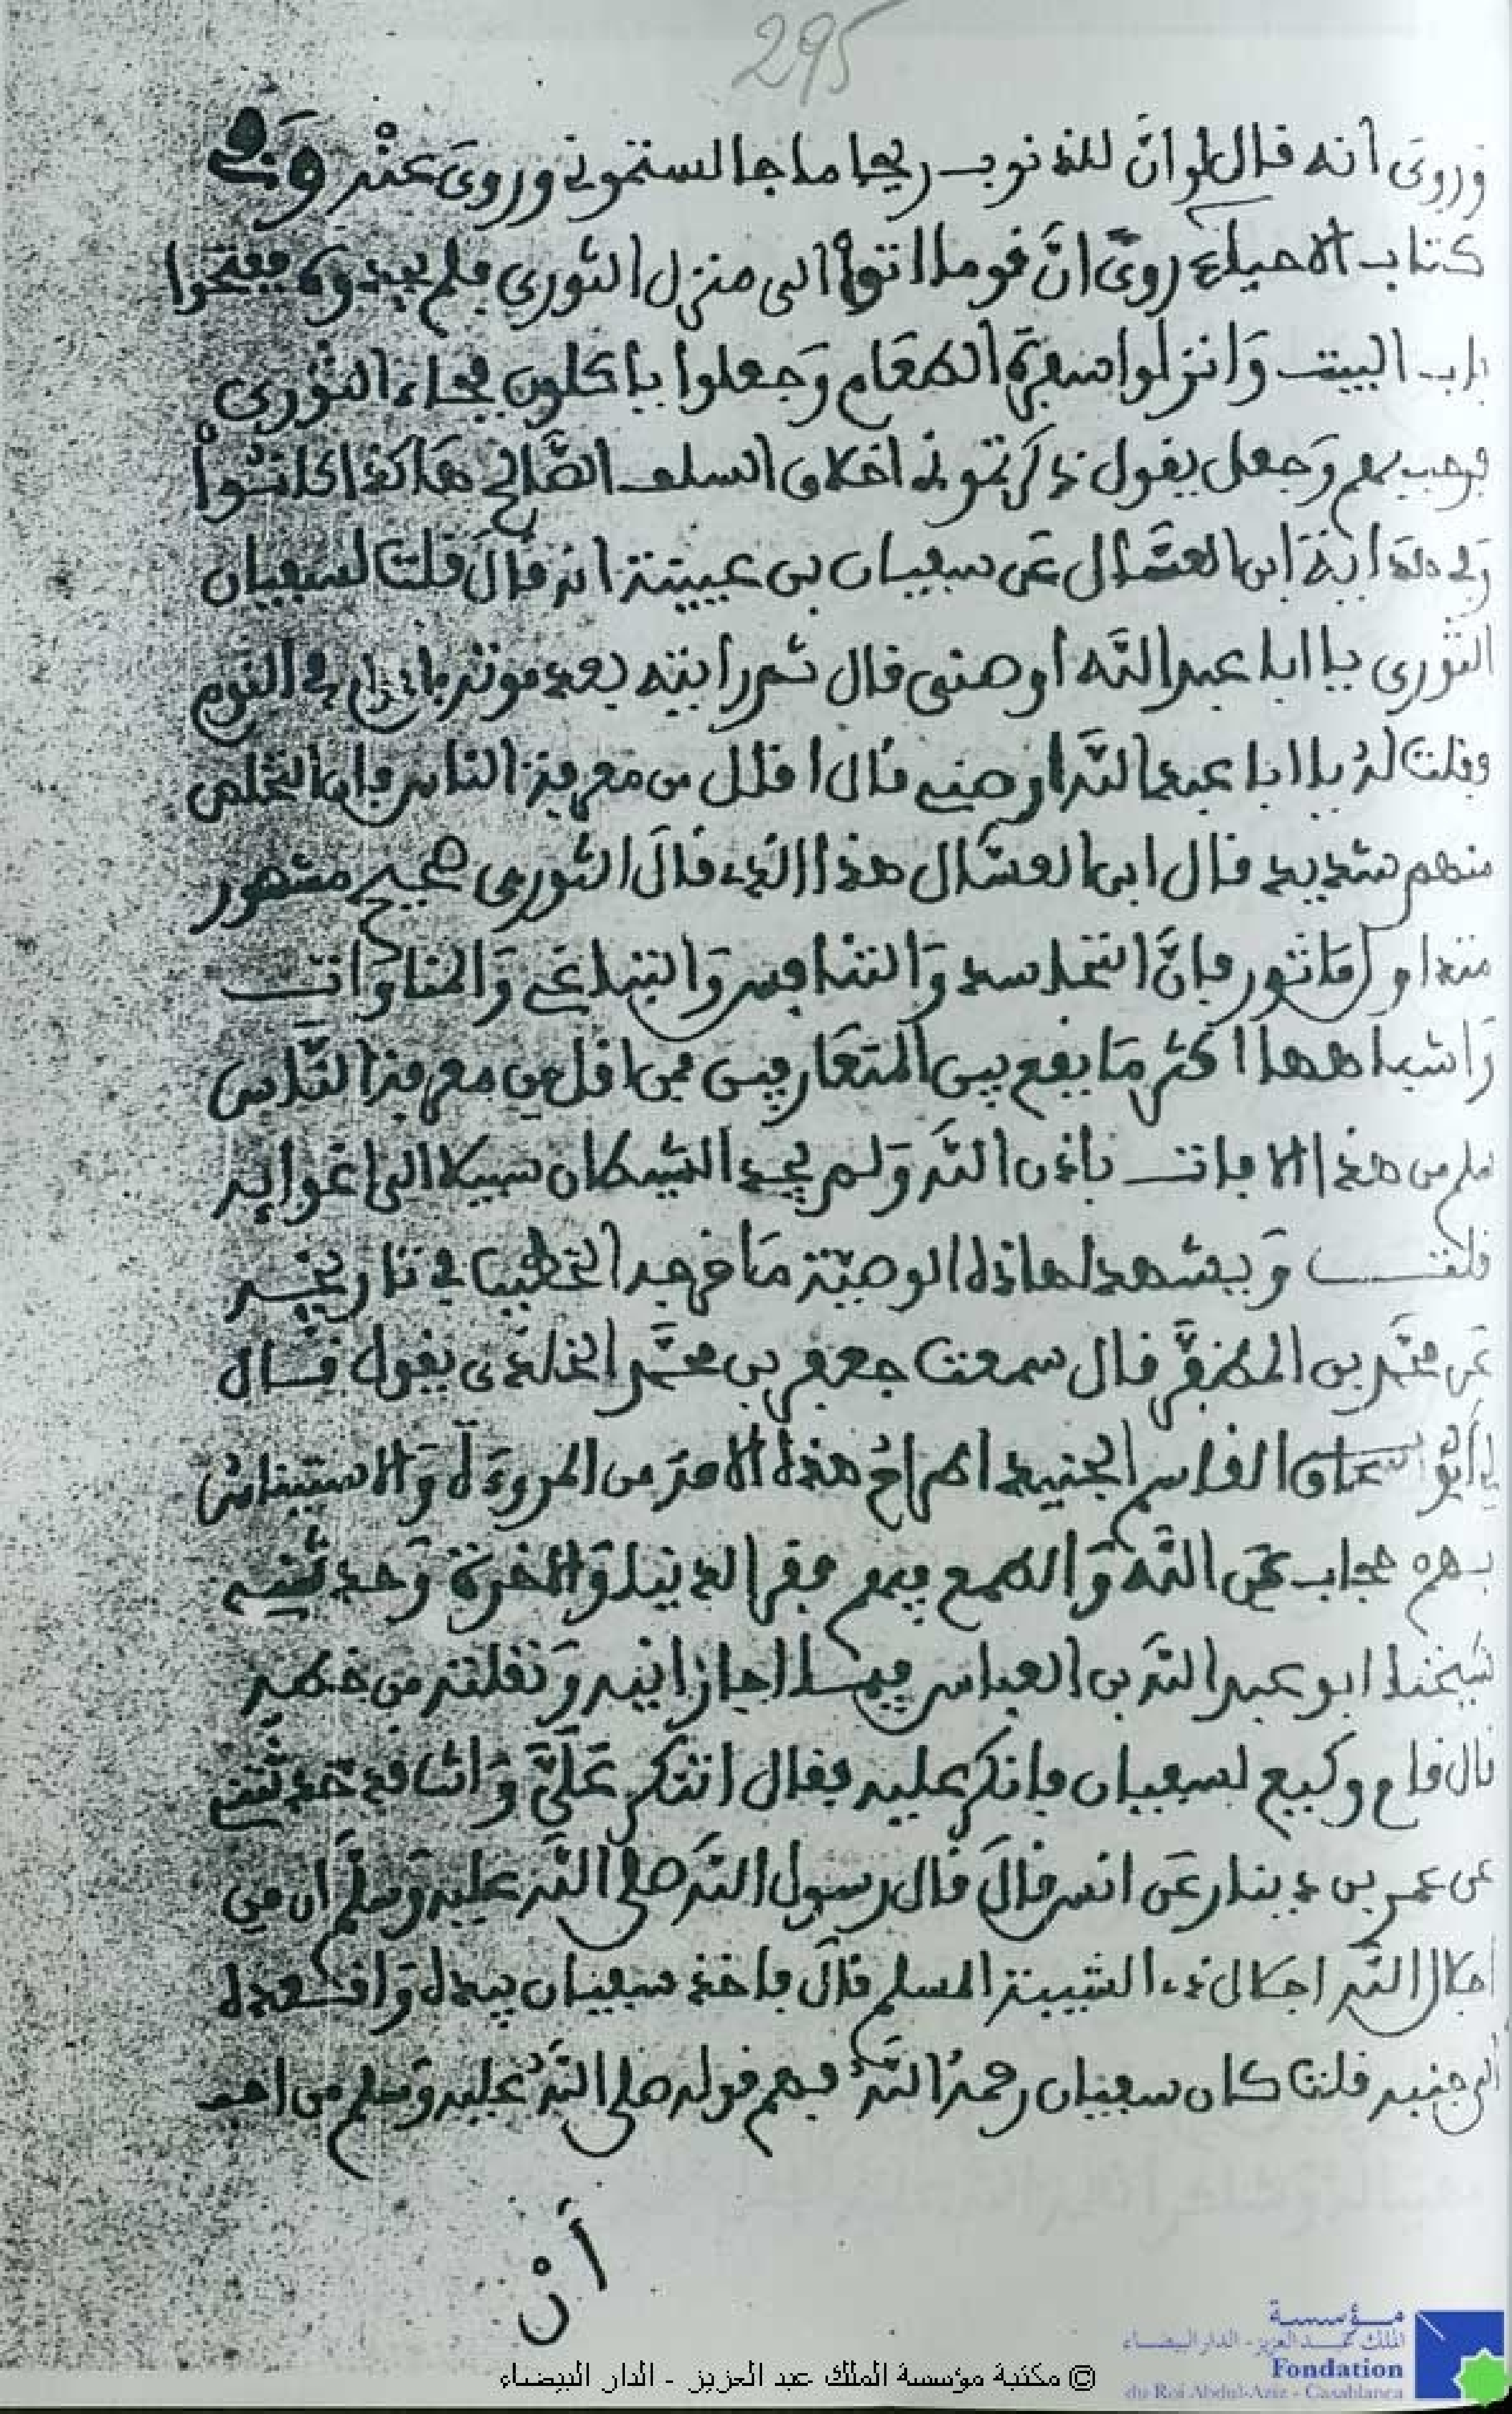 295
وروى أنه قال لو انّ للذنوب ريحا ما جالستموني وروى عنه وفي
كتاب الاحياء روى انّ قوما اتوا الى منزل الثوري فلم يجدوه ففتحوا
باب البيت وَانزلوا سفرة الطعام وَجعلوا ياكلون فجاء الثوري
وجعل يقول ذكرتموني اخلاق السلف الصّالح هَاكذا كانوا
ابن العسّال عَن سفيان بن عيينة انه قال قلت لسفيان
الثوري يا ابا عبد الله أوصني قال ثم رايته بعد موته في النوم
وقلت له يا ابا عبد الله اوصني قال اقلل من معرفة الناس فان التخلص
منهم شديد قال ابن العسّال هذا الذي قالَ الثوري صحيح مشهور
فإنَّ التحاسد وَالتنافس وَالتباغي وَالمناوَات
وَاشباهها اكثر مَا يقع بين المتعَارفين فمن اقل من معرفة النّاس
سلم من هذه الافات باذن الله وَلم يجد الشيطان سبيلا الى اغوايه
قلت وَيشهد لهاذه الوصيّة مَا خرجه الخطيب في تاريخه
عَن محمّد بن المظفّر قال سمعت جعفر بن محمّد الخلدي يقول قال
القاسم الجنيد اطراح هذه الامّة من المروءة وَالاستيناس
بهم حجاب عَن اللّه وَالطمع فيهم فقر الدنيا وَالاخرة وَحدثني
شيخنا ابو عبد الله بن العباس فيما اجازانيه وَنقلته من خطه
قال قام وكيع لسفيان فانكر عليه فقال اتنكر عَليَّ وَانت قد حَدثتني
عن عمر بن دينار عَن انس قالَ قال رسول الله صلى الله عليه وَسلّم ان من
اجلال الله اجلال ذي الشيبة المسلم قالَ فاخذ سفيان بيده وَاقعده
الى جنبه قلت كان سفيان رحمهُ اللهُ فهم قوله صلى اللهُ عليه وَسلم من احب
أنْ
© مكتبة مؤسسة الملك عبد العزيز - الدار البيضاء
مؤسسة
الملك عبد العزيز - الدار البيضاء
Fondation
du Roi Abdul-Aziz - Casablanca